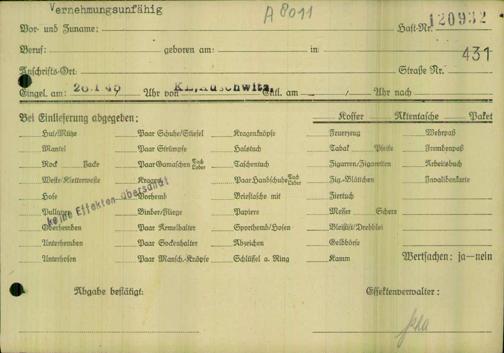 Vernehmungsunfähig
A 8011
Vor- und Zuname: Haft-Nr. 120932
Beruf: geboren am: in 431
Anschrifts-Ort: Straße Nr.
Eingel. am: 26.1.45 Uhr von KL.Auschwitz Entl. am / Uhr nach
Bei Einlieferung abgegeben: Koffer Aktentasche Paket
Hut/Mütze Paar Schuhe/Stiefel Kragenknöpfe Feuerzeug Wehrpaß
Mantel Paar Strümpfe Halstuch Tabak Pfeife Fremdenpaß
Rock Jacke Paar Gamaschen Tuch Leder Taschentuch Zigarren/Zigaretten Arbeitsbuch
Weste/Kletterweste Kragen Paar Handschuhe Tuch Leder Zig.-Blättchen Invalidenkarte
Hose Vorhemd Brieftasche mit Ziertuch
Pullover Binder/Fliege Papiere Messer Schere
keine Effekten übersandt
Oberhemden Paar Ärmelhalter Sporthemd/Hosen Bleistift/Drehblei
Unterhemden Paar Sockenhalter Abzeichen Geldbörse
Unterhosen Paar Mansch.-Knöpfe Schlüssel a. Ring Kamm Wertsachen: ja—nein
Abgabe bestätigt: Effektenverwalter: